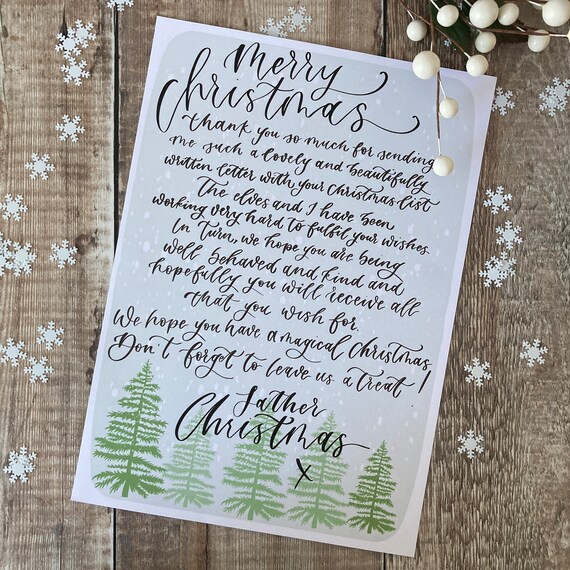 Merry
Christmas
Thank you so much for sending
me such a lovely and beautifully
written letter with your Christmas list
The elves and I have been
working very hard to fulfil your wishes.
In turn, we hope you are being
well behaved and kind and
hopefully you will receive all
that you wish for.
We hope you have a magical Christmas,
Don't forget to leave us a treat!
Father
Christmas
X